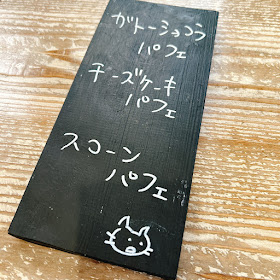 ガトーショコラ
パフェ
チーズケーキ
パフェ
スコーン
パフェ